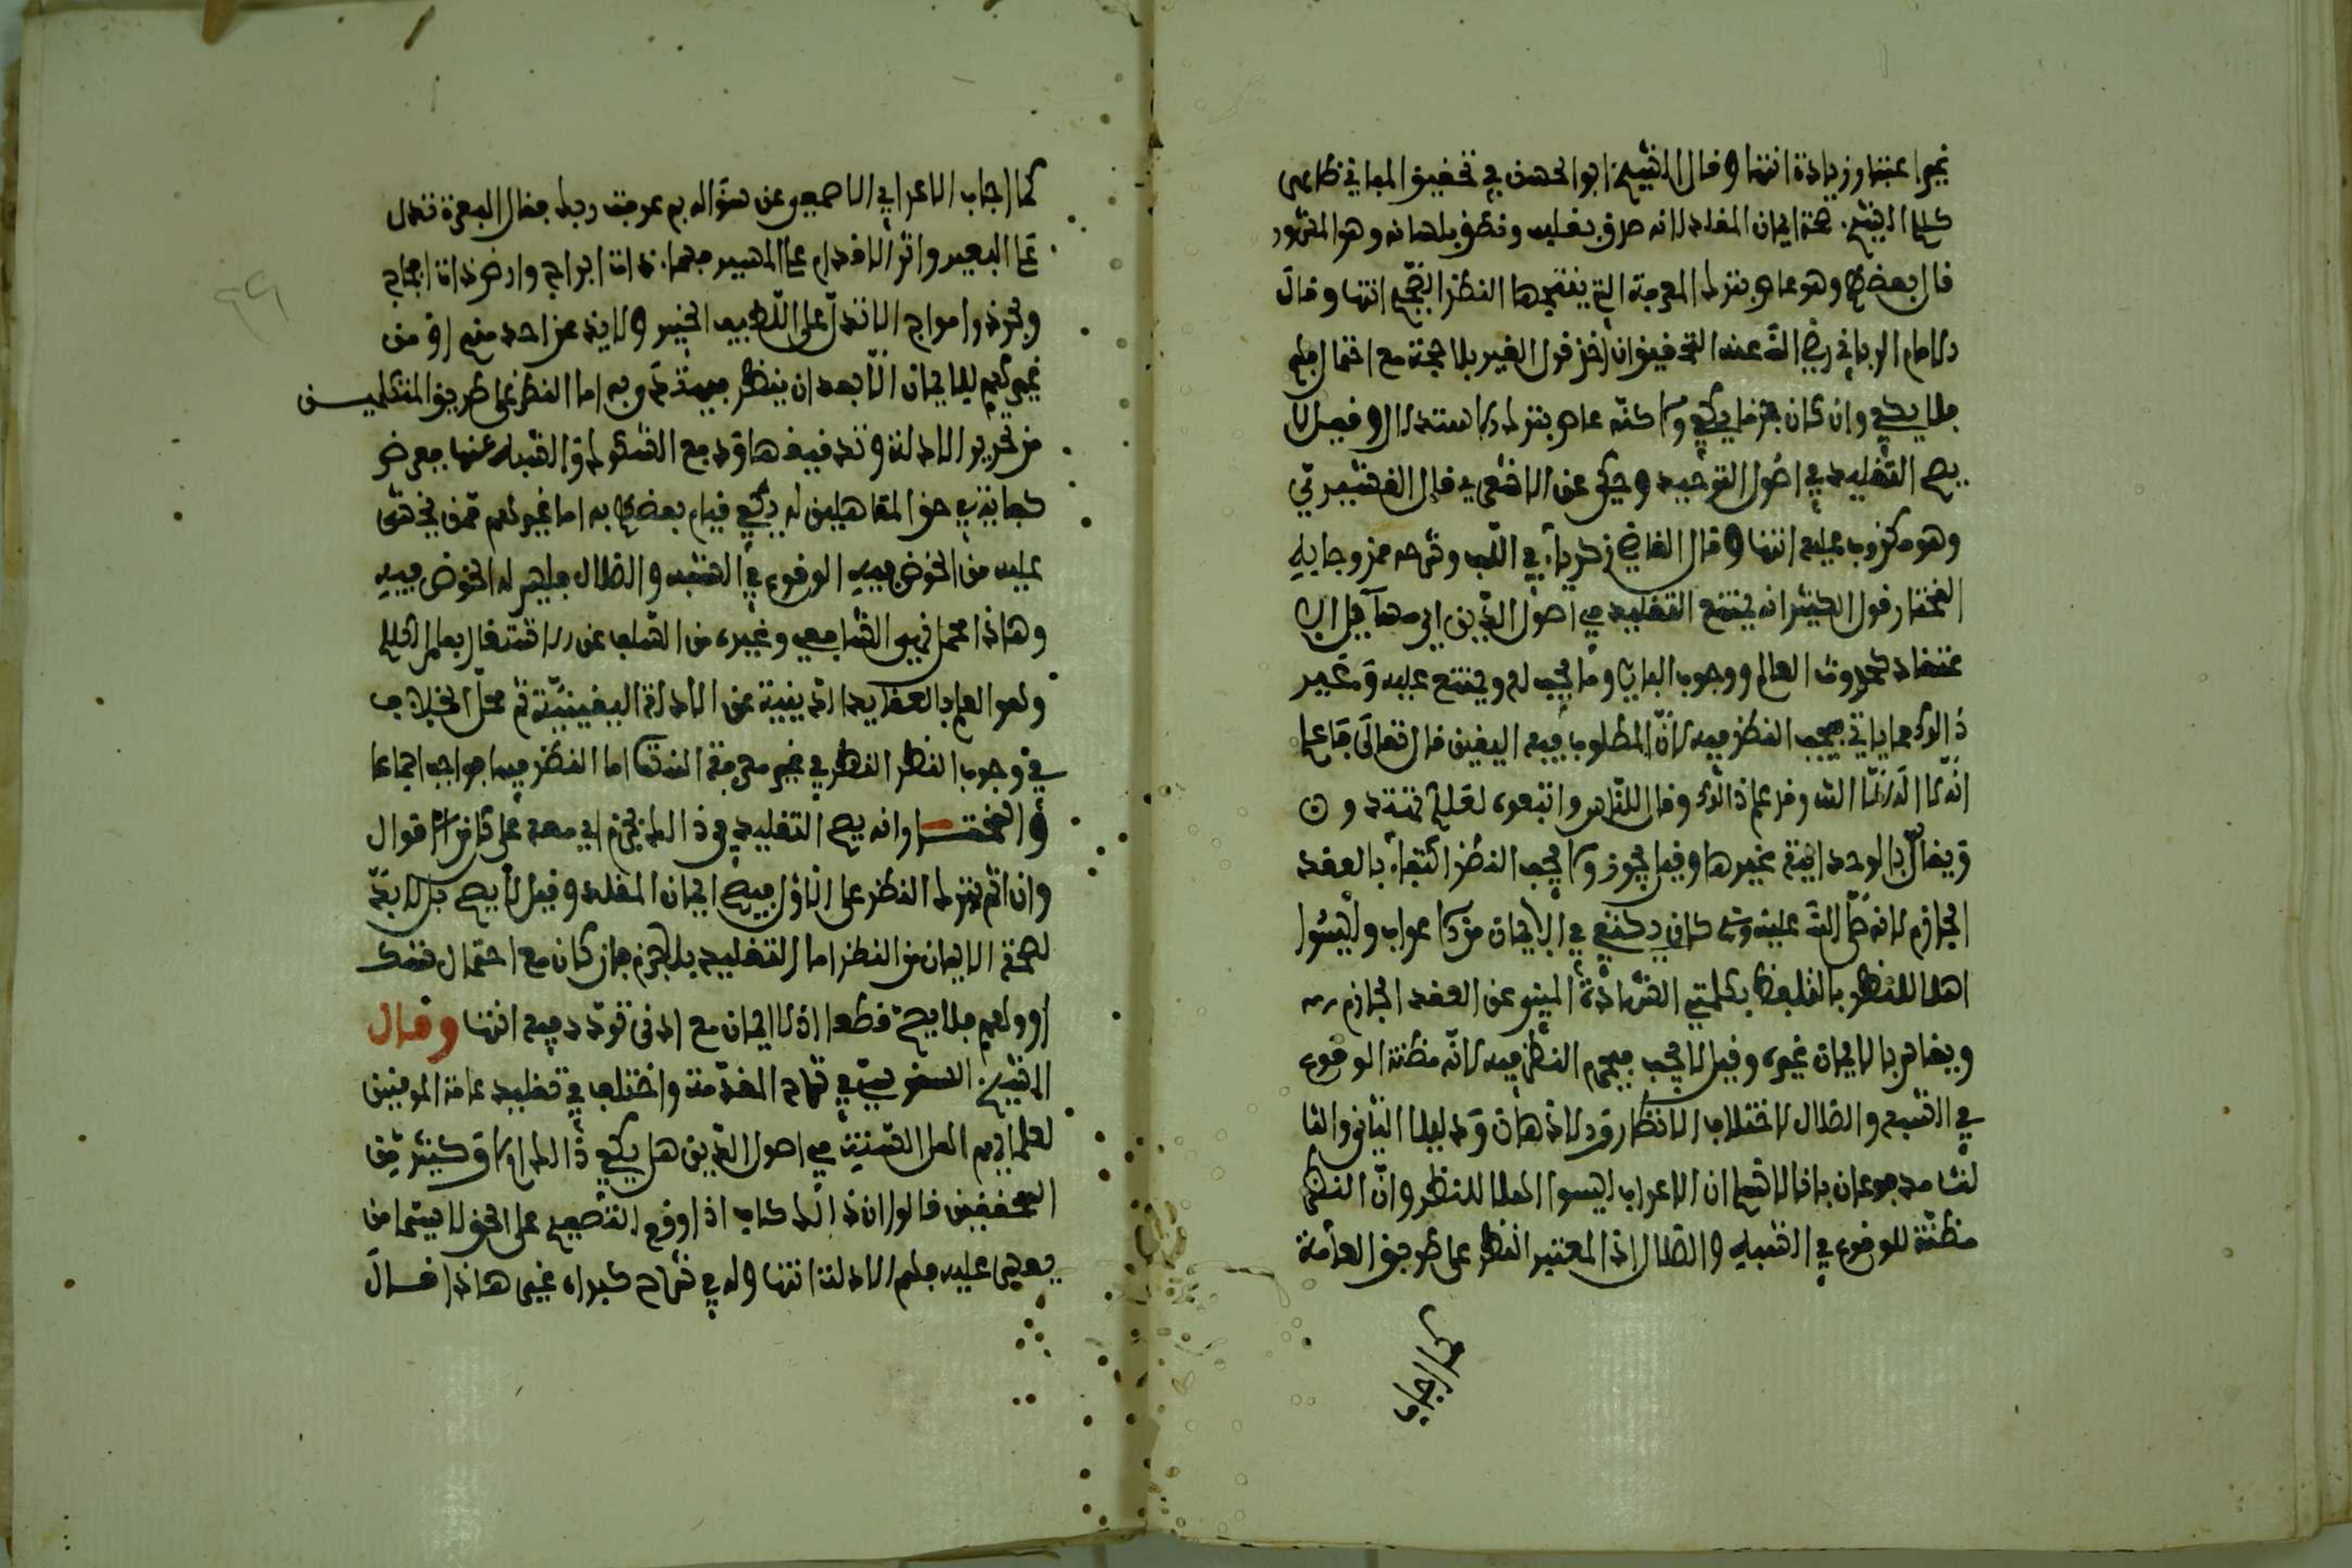 غير اعتبار زيادة انتها وقال الشيخ ابو الحسن في تحقيق المباني ظاهر
كلام الشيخ صحة ايمان المقلد لانه صدق بقلبه ونطق بلسانه وهو المشهور
قال بعضهم وهو عام بترك المعرفة التي ينتجها النظر الصحيح انتها وقال
الامام الرباني رضي الله عنه التحقيق ان اخذ قول الغير بلا حجة مع احتمال
فلا يكفي وان كان جزما يكفي ولاكنه عاص بترك الاستدلال وقيل لا
يصح التقليد في اصول التوحيد وحكي عن الاشعري قال القشيري
وهو مكذوب عليه انتها وقال القاضي زكرياء في اللب وشرحه ممزوجا به
المختار قول الكثير انه يمتنع التقليد في اصول الدين اي مسآيل الا
عتقاد كحدوث العالم ووجود الباري وما يجب له ويمتنع عليه وغير
ذالك مما ياتي فيجب النظر فيه لانّ المطلوب فيه اليقين قال تعالى فاعلم
انه لا الاه الا الله وقد علم ذالك وقال للناس واتبعوه لعلكم تهتدون
ويقاس بالوحدانية غيرها وقيل يجوز ولا يجب النظر اكتفاء بالعقد
الجازم لانه صلى الله عليه وسلم كان يكتفي في الايمان من الاعراب وليسوا
اهلا للنظر بالتلفظ بكلمتي الشهادة المنبي عن العقد الجازم
ويقاس بالايمان غيره وقيل لا يجب فيحرم النظر فيه لانه مظنة الوقوع
في الشبه والضلال لاختلاف الانظار والاذهان ودليلا الثاني والثا
لث مدفوعان بانا لا نسلم ان الاعراب ليسوا اهلا للنظر وانّ النظر
مظنّة للوقوع في الشبه والضلال اذ المعتبر النظر على طريق العامة
كما اجاب
كما اجاب الاعرابي الاصمعي عن سؤاله بم عرفت ربك فقال البعرة تدل
على البعير واثر الاقدام على المسير فسماء ذات ابراج وارض ذات فجاج
وبحر ذو امواج الا تدل على اللطيف الخبير ولا يذعن احد منهم او من
غيرهم للايمان الا بعد ان ينظر فيهتدي به اما النظر على طريق المتكلمين
من تحرير الادلة وتدقيقها ودفع الشكوك والشبه عنها ففرض
كفاية في حق المتاهلين له يكفي قيام بعضهم به اما غيرهم ممن يخشى
عليه من الخوض فيه الوقوع في الشبه والضلال فليس له الخوض فيه
وهاذا محمل نهي الشافعي وغيره من السلف عن الاشتغال بعلم الكلام
وهو العلم بالعقايد الدينية عن الادلة اليقينيّة ثم محلّ الخلاف
في وجوب النظر النظر في غير معرفة الله تعالى اما النظر فيها فواجب اجماعا
والمختار انه يصح التقليد في ذالك لجزم اي معه على كل من الاقوال
وان اثم بترك النظر على الاول فيصح ايمان المقلد وقيل لا يصح بل لا بد
لصحة الايمان من النظر اما التقليد بلا جزم بان كان مع احتمال شك
او وهم فلا يصح قطعا اذ لا ايمان مع ادنى تردد فيه انتها وقال
الشيخ السنوسي في شرح المقدمة واختلف في تقليد عامة المومنين
لعلمايهم اهل السنة في اصول الدين هل يكفي ذالك ام لا وكثير من
المحققين قالوا ان ذالك كاف اذا وقع التصميم على الحق لا سيما من
يعسر عليه فهم الادلة انتها وله في شرح كبراه غير هاذا قال